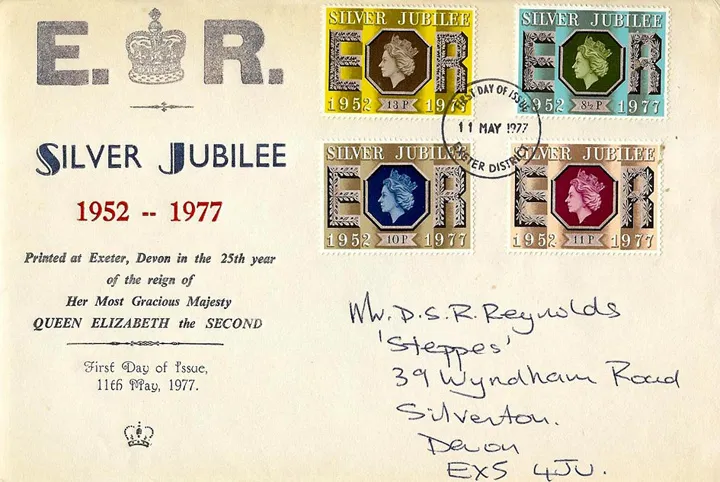 E. R.
SILVER JUBILEE
1952 -- 1977
Printed at Exeter, Devon in the 25th year
of the reign of
Her Most Gracious Majesty
QUEEN ELIZABETH the SECOND
First Day of Issue,
11th May, 1977.
SILVER JUBILEE
E R
1952 13P 1977
SILVER JUBILEE
E R
1952 8½P 1977
FIRST DAY OF ISSUE
11 MAY 1977
EXETER DISTRICT
SILVER JUBILEE
E R
1952 10P 1977
SILVER JUBILEE
E R
1952 11P 1977
Mr. D.S.R. Reynolds
'Steppes'
39 Wyndham Road
Silverton.
Devon
EX5 4JU.